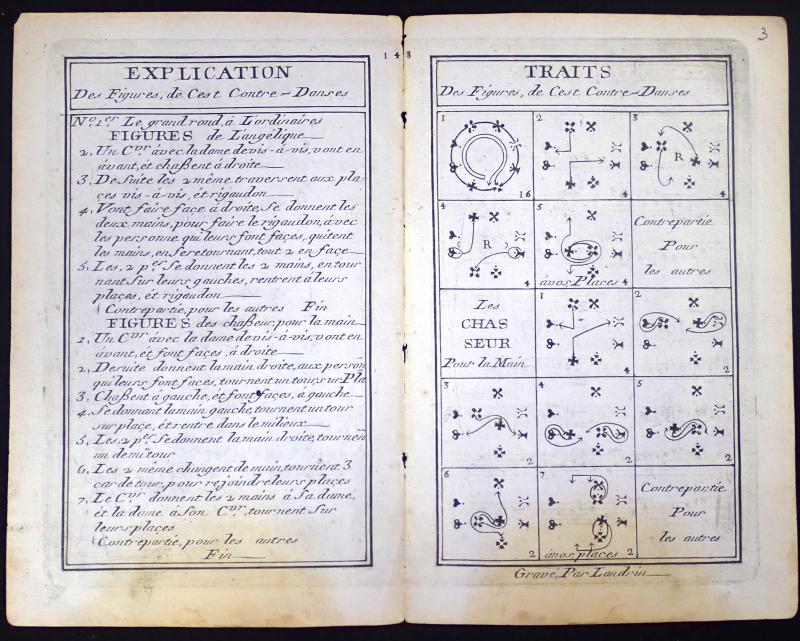 148
EXPLICATION
Des Figures, de Cest Contre-Danses
No. 1er Le grand rond, à L'ordinaires
FIGURES de L'angélique
2. Un Cvr avec la dame de vis-à-vis, vont en
avant, et chaßent à droite
3. De Suite les 2 même traversent aux pla-
çes vis-à-vis, ét rigaudon
4. Vont faire façe à droite, Se donnent les
deux mains, pour faire le rigaudon, avéc
les personne qui leurs font façes, quitent
les mains, en se retournant, tout 2 en façe
5. Les, 2 prs Se donnent les 2 mains, en tour
nant Sur leurs gauches, rentrent à leurs
plaçes, ét rigaudon
Contrepartie, pour les autres Fin
FIGURES des chaßeur, pour la main
1. Un Cvr avéc la dame de vis-à-vis, vont en
avant, ét font façes, à droite
2. De suite donnent la main droite, aux persõn
qui leurs font façes, tournent un tour sur Pla
3. Chaßent à gauche, ét font façes, à gauche
4. Se donnant la main gauche, tournent un tour
sur plaçe, ét rentre dans le milieux
5. Les 2 prs Se donnent la main droite, tournẽn
un demi tour
6. Les 2 même changent de main, tournent 3
car de tour, pour rejoindre leurs plaçes
7. Le Cvr donnent les 2 mains à Sa dame,
ét la dame à Son Cvr, tournent Sur
leurs plaçes
Contrepartie, pour les autres
Fin
3
TRAITS
Des Figures, de Cest Contre-Danses
1 16
2 4
3 R 4
4 R 4
5 à vos Places 4
Contrepartie
Pour
les autres
Les
CHAS
SEUR
Pour la Main
1 4
2 2
3 2
4 2
5 2
6 2
7 à vos places 2
Contrepartie
Pour
les autres
Gravé, Par Landrin